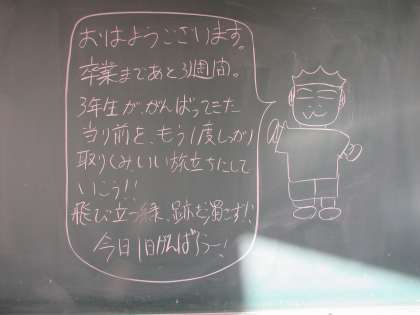 おはようございます。
卒業まであと3週間。
3年生が、がんばってきた
当り前を、もう1度しっかり
取りくみ、いい旅立ちにして
いこう!!
飛び立つ 跡を濁こず!!
今日1日がんばろー!